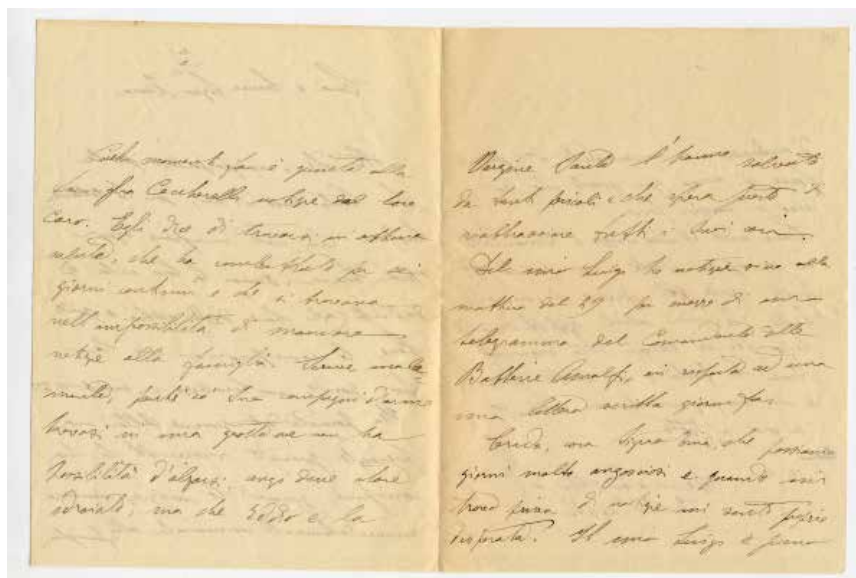 Pochi momenti fa è giunta alla
famiglia Ceccherelli notizie dal loro
caro. Egli dice di trovarsi in ottima
salute, che ha combattuto per sei
giorni continui e che si trovava
nell'impossibilità di mandare
notizie alla famiglia. Scrive mala
mente, perchè coi suoi compagni d'arme
trovasi in una grotta ove non ha
possibilità d'alzarsi, anzi deve stare
sdraiato, ma che Iddio e la
Vergine Santa l'hanno salvato
da tanti pericoli e che spera presto di
riabbracciare tutti i suoi cari.
Del mio Luigi ho notizie sino alla
mattina del 29 per mezzo di un
telegramma del Comandante delle
Batterie Amalfi, in risposta ad una
mia lettera scritta giorni fa.
Creda, mia Signora, che passiamo
giorni molto angosciosi e quando mi
trovo priva di notizie mi sento proprio
disperata. Il mio Luigi è pieno